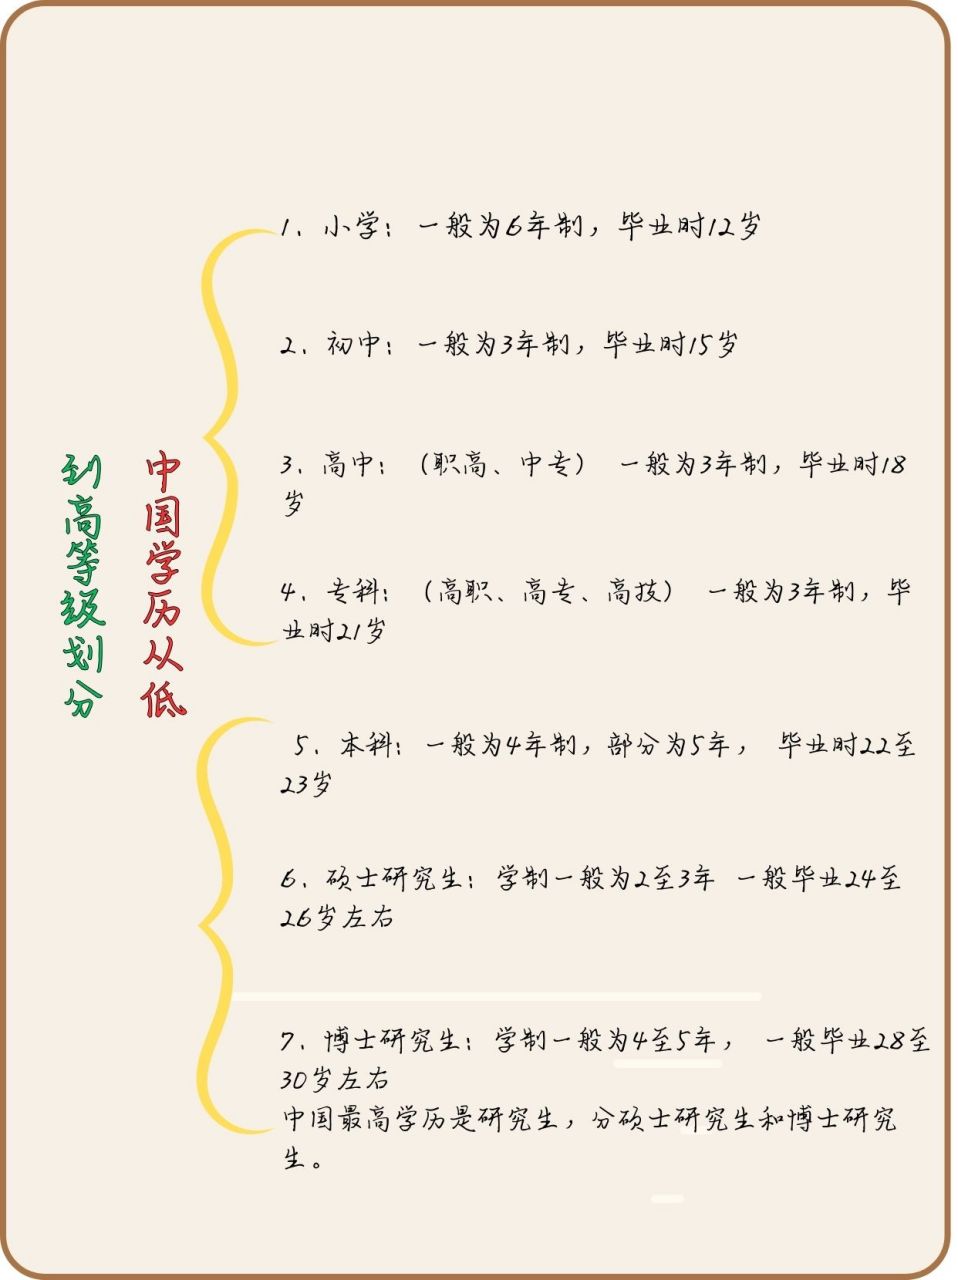 中国学历从低
到高等级划分
1、小学：一般为6年制，毕业时12岁
2、初中：一般为3年制，毕业时15岁
3、高中：（职高、中专） 一般为3年制，毕业时18
岁
4、专科：（高职、高专、高技） 一般为3年制，毕
业时21岁
5、本科：一般为4年制，部分为5年， 毕业时22至
23岁
6、硕士研究生：学制一般为2至3年 一般毕业24至
26岁左右
7、博士研究生：学制一般为4至5年， 一般毕业28至
30岁左右
中国最高学历是研究生，分硕士研究生和博士研究
生。